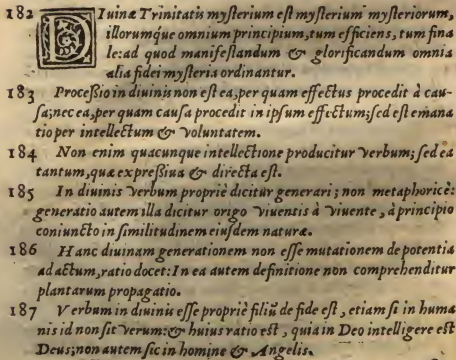 182 DIuinæ Trinitatis mysterium est mysterium mysteriorum,
illorumque omnium principium, tum efficiens, tum fina
le: ad quod manifestandum & glorificandum omnia
alia fidei mysteria ordinantur.
183 Processio in diuinis non est ea, per quam effectus procedit à cau-
sa; nec ea, per quam causa procedit in ipsum effectum; sed est emana
tio per intellectum & voluntatem.
184 Non enim quacunque intellectione producitur verbum; sed ea
tantum, quæ expressiua & directa est.
185 In diuinis verbum propriè dicitur generari; non metaphoricè:
generatio autem illa dicitur origo viuentis à viuente, à principio
coniuncto in similitudinem eiusdem naturæ.
186 Hanc diuinam generationem non esse mutationem de potentia
ad actum, ratio docet: In ea autem definitione non comprehenditur
plantarum propagatio.
187 Verbum in diuinis esse propriè filiũ de fide est, etiam si in huma
nis id non sit verum: & huius ratio est, quia in Deo intelligere est
Deus; non autem sic in homine & Angelis.